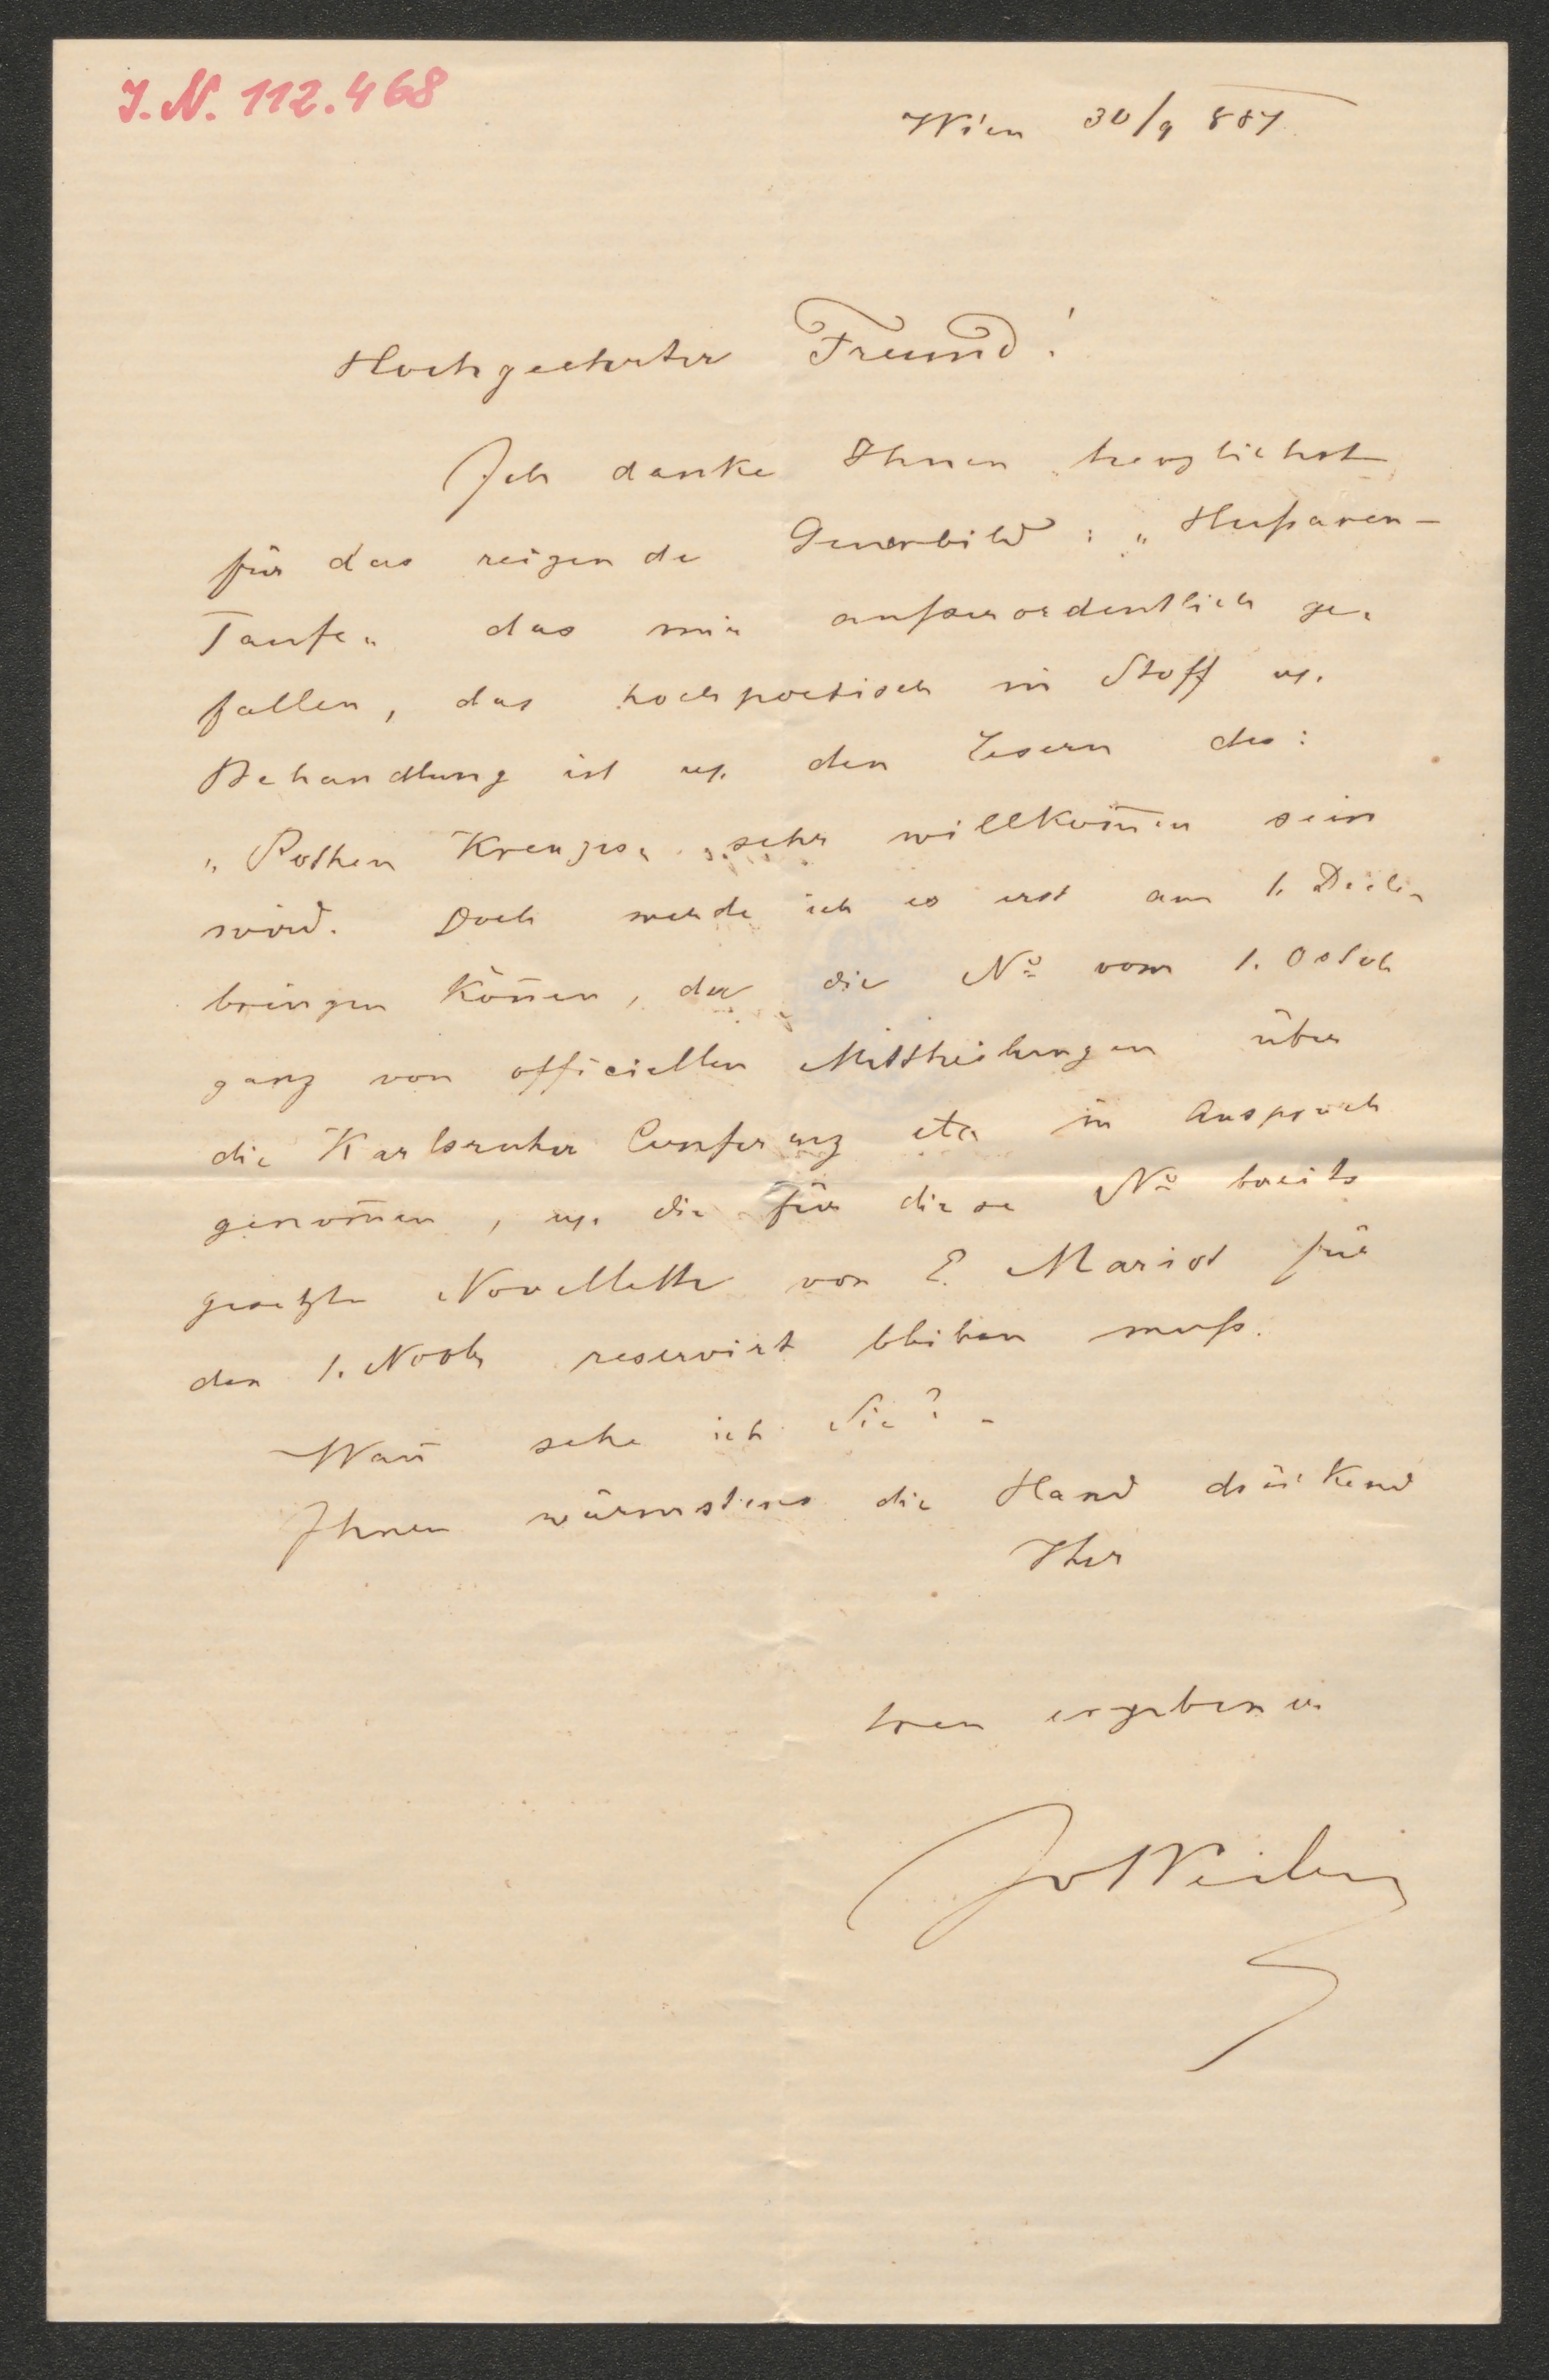 J.N. 112.468
Wien 30/9 887
Hochgeehrter Freund!
Ich danke Ihnen herzlichst
für das reizende Genrebild: „Hußaren-
Taufe" das mir außerordentlich ge-
fallen, das hochpoetisch in Stoff u.
Behandlung ist u. den Lesern des:
„Rothen Kreuzes" sehr willkom̅en sein
wird. Doch werde ich es erst am 1. Decbr
bringen kön̅en, da die No vom 1. Octob
ganz von officiellen Mittheilungen über
die Karlsruher Conferenz etc in Anspruch
genom̅en, u. die für diese No bereits
gesetzte Novellette von E. Mariot für
den 1. Novbr reservirt bleiben muß.
Wan̅ sehe ich Sie? -
Ihnen wärmstens die Hand drückend
Ihr
treu ergebener
JvWeilen